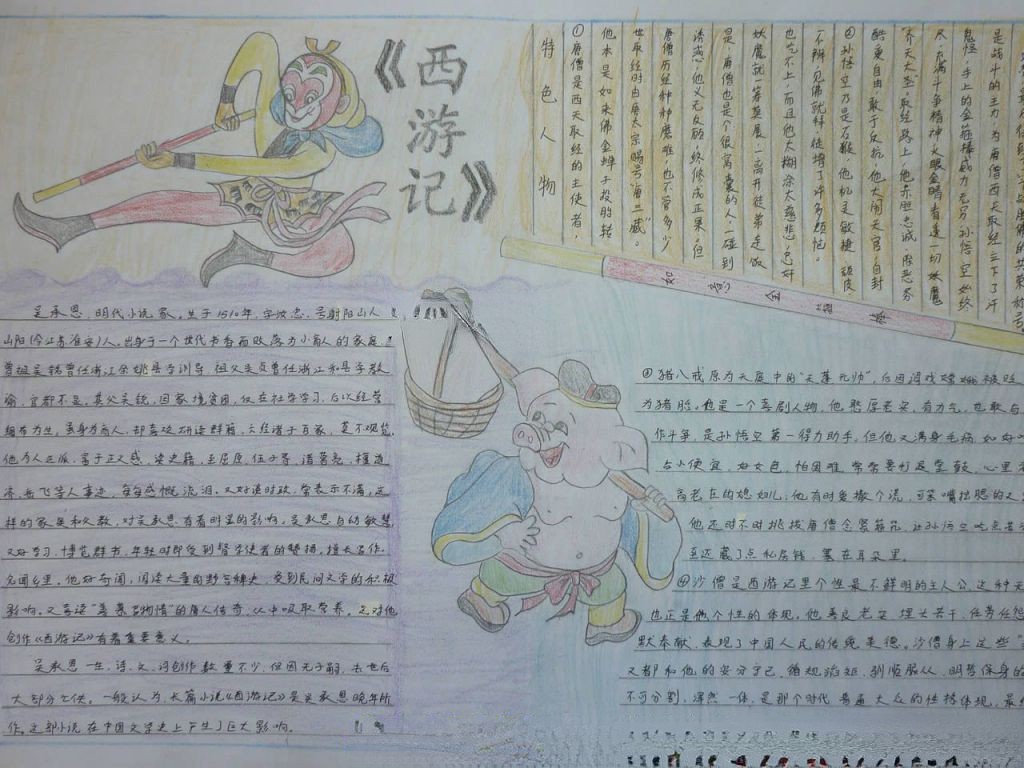 《西游记》
特色人物
①唐僧是西天取经的主使者，
他本是如来佛金蝉子投胎转
世取经时由唐太宗赐号"唐三藏"。
唐僧历经种种磨难，也不管多少
诱惑，他义无反顾，终修成正果，但
是，唐僧也是个很窝囊的人，一碰到
妖魔就一筹莫展，一离开徒弟连饭
也吃不上，而且他太糊涂太慈悲，总奸
不辨见佛就拜，徒增了许多烦恼。
②孙悟空乃是石猴，他机灵敏捷 顽皮
酷爱自由，敢于反抗，他大闹天宫，自封
齐天大圣，取经路上，他赤胆忠诚，除恶务
尽，充满斗争精神，火眼金睛看透一切妖魔
鬼怪，手上的金箍棒威力无穷，孙悟空始终
是战斗的主力，为唐僧西天取经立下了汗
如意金箍棒
吴承恩，明代小说家。生于1510年，字汝忠，号射阳山人
山阳(今江苏淮安)人。出身于一个世代书香而败落为小商人的家庭。
曾祖吴铭曾任浙江余姚县学训导 祖父吴贞曾任浙江和县学教
谕，官都不显。其父吴锐，因家境贫困，仅在社学学习，后以经营
细布为生，虽身为商人，却喜欢研读群籍，六经诸子百家，莫不观览，
他为人正派，富于正义感，读史籍，至屈原，伍子胥，诸葛亮，檀道
济，岳飞等人事迹，每每感慨流泪。又好谈时政，常表示不满，这
样的家庭和父教，对吴承恩有着明显的影响，吴承恩自幼敏慧
又好学习，博览群书，年轻时即受到督学使者的赞扬，擅长写作，
名闻乡里。他好奇闻，阅读大量的野言稗史，受到民间文学的积极
影响。又喜读"善摹写物情"的唐人传奇，从中吸取营养。这对他
创作《西游记》有着重要意义。
吴承恩一生，诗、文、词创作数量不少，但因无子嗣，去世后
大部分亡佚。一般认为，长篇小说《西游记》是吴承恩晚年所
作。这部小说在中国文学史上产生了巨大影响。
③猪八戒原为天庭中的"天蓬元帅"，后因调戏嫦娥被贬
为猪胎。他是一个喜剧人物，他憨厚老实，有力气，也敢与
作斗争，是孙悟空第一得力助手，但他又满身毛病，如好吃
占小便宜，好女色，怕困难，常常要打退堂鼓，心里老
高老庄的媳妇儿；他有时爱撒个谎，可笨嘴拙腮的又
他还时不时挑拨唐僧念紧箍咒，让孙悟空吃点苦头
至还藏了点私房钱，塞在耳朵里。
④沙僧是西游记里个性最不鲜明的主人公，这种无
也正是他个性的体现，他善良老实，埋头苦干，任劳任怨
默奉献，表现了中国人民的传统美德。沙僧身上这些
又都和他的安分守己，循规蹈矩，驯顺服从，明哲保身的
不可分割，浑然一体，是那个时代普通大众的性格体现，最